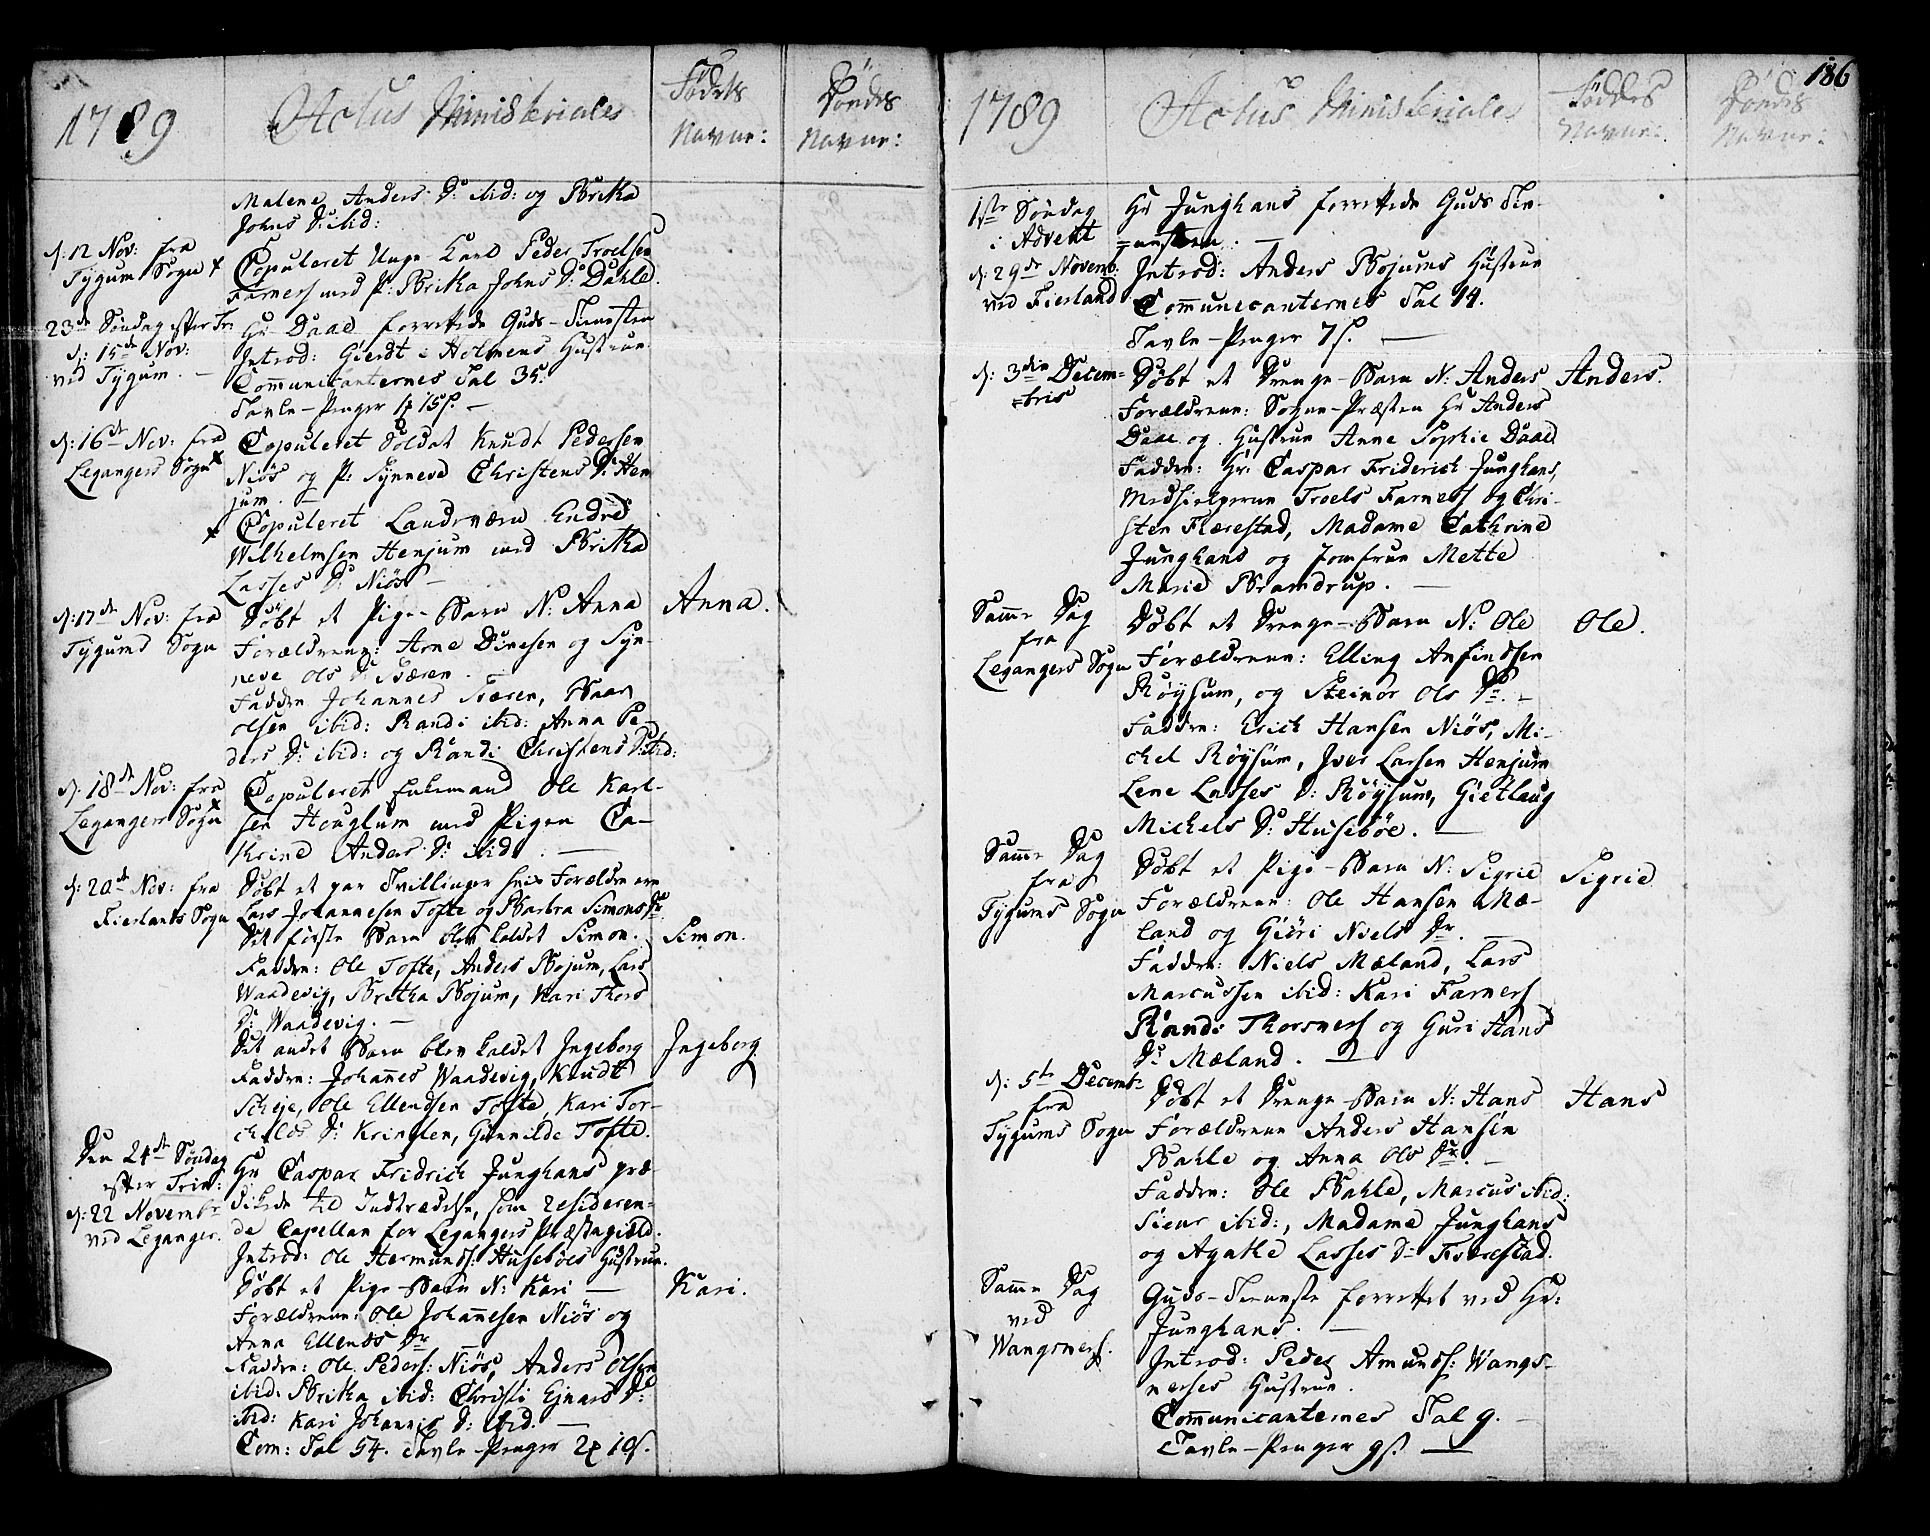 1789
Actus Ministeriales
Fødets
Navne:
Dôndes
Navne:
Malene Anders D: ibid: og Britha
Johns D: ibid:
d: 12 Nov: fra
Tygum Sogn
Copuleret Unge Karl Peder Troelsen
Farness med P: Britha Johns D: Dahle.
23de Søndag efter Tr:
d: 15de Nov:
ved Tygum. —
Hr Daae forrettede Guds-Tienesten
Introd: Gierdt i Holmens Hustrue
Communicanternes Tal 35.
Tavle-Penger 1 15 s. —
d: 16de Nov: fra
Legangers Sogn
Copuleret Soldat Knudt Pedersen
Niös og P: Synneve Christens D: Hen
jum. —
Copuleret Landværn Endre
Wilhelmsen Henjum med Britha
Lasses D: Niös —
d: 17de Nov: fra
Tygums Sogn
Döbt et Pige-Barn N: Anna
Anna.
Forældrene: Arne Dinesen og Syn-
neve Ols D: Sværen.
Faddre Johannes Sværen, Baar
Olsen ibid: Randi ibid: Anna Pe-
ders D: ibid: og Randi Christens D: ibid:
d: 18de Nov: fra
Legangers Sogn
Copuleret Enkemand Ole Karl-
sen Houglum med Pigen Ca-
thrine Anders D: ibid: —
d: 20de Nov: fra
Fierlands Sogn
Döbt et par Tvillinger hvis Forældre ere
Lars Johannesen Tofte og Barbra Simons Dr
Det første Barn blev kaldet Simon.
Simon.
Faddre: Ole Tofte, Anders Bojum, Lars
Waadevig, Britha Bojum, Kari Thors
D: Waadevig. —
Det andet Barn blev kaldet Ingeborg
Ingeborg
Faddre: Johannes Waadevig, Knudt
Scheje, Ole Ellendsen Tofte, Kari Tor-
childs D: Kringlen, Gunnilde Tofte.
Den 24de Søndag
efter Trin:
d: 22 Novembr
ved Leganger.
Hr Caspar Fridrich Junghans præ-
dikede til Indtrædelse, som resideren-
de Capellan for Legangers Præstegield.
Introd: Ole Hermunds: Huseböes Hustrue.
Döbt et Pige-Barn N: Kari —
Kari.
Forældrene: Ole Johannesen Niös og
Anna Ellends Dr —
Faddre: Ole Peders: Niös, Anders Olsen
ibid: Britha ibid: Christi Ejnars D:
ibid: Kari Johannis D: ibid. —
Com: Tal 54. Tavle-Penger 2 10 s.
186
1789
Actus Ministeriales
Föddes
Navne:
Döndes
Navne:
1ste Søndag
i Advent
d: 29de Novemb:
ved Fierland
Hr Junghans forrettede Guds Tien-
=nesten. —
Introd: Anders Bojums Hustrue
Communicanternes Tal 14.
Tavle-Penger 7 s. —
d: 3die Decem=
=bris
Döbt et Drenge-Barn N: Anders
Anders.
Forældrene: Sogne-Præsten Hr Anders
Daae og Hustrue Anne Sophie Daae
Faddre: Hr: Caspar Friderich Junghans,
Medhielperne Troels Farness og Chri-
sten Flærestad, Madame Cathrine
Junghans og Jomfrue Mette
Marie Bramdrup. —
Samme Dag
fra
Legangers Sogn
Döbt et Drenge-Barn N: Ole
Ole.
Forældrene: Elling Anfindsen
Röysum, og Steinor Ols Dr. —
Faddre: Erich Hansen Niös, Mi-
chel Röysum, Iver Larsen Henjum
Lene Lasses D: Röysum, Gietlaug
Michels D: Huseböe. —
Samme Dag
fra
Tygums Sogn
Döbt et Pige-Barn N: Sigrie
Sigrie
Forældrene: Ole Hansen Mæ-
land og Giöri Niels Dr. —
Faddre: Niels Mæland, Lars
Marcussen ibid: Kari Farness
Randi Thorsness og Guri Hans
D: Mæland. —
d: 5te Decemb:
fra
Tygums Sogn
Döbt et Drenge-Barn N: Hans
Hans
Forældrene Anders Hansen
Bahle og Anna Ols Dr. —
Faddre: Ole Bahle, Marcus ibid:
Siur ibid:, Madame Junghans
og Agathe Lasses D: Flærestad.
Samme Dag
ved
Wangsness.
Guds-Tieneste forrettet ved Hr:
Junghans. —
Introd: Peder Amunds: Wangs-
nesses Hustrue.
Communicanternes Tal 9. —
Tavle-Penger 9 s. —